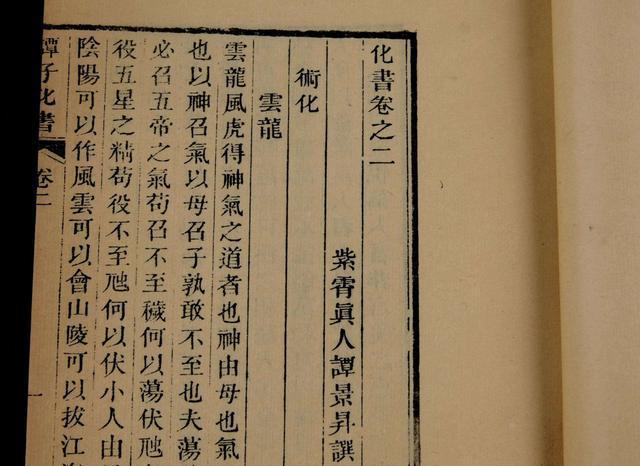 化書卷之二
紫霄眞人譚景昇譔
術化
雲龍
雲龍風虎得神氣之道者也神由母也氣
也以神召氣以母召子孰敢不至也夫蕩
必召五帝之氣苟召不至穢何以蕩伏虺
役五星之精苟役不至虺何以伏小人由
陰陽可以作風雲可以會山陵可以拔江
譚子化書
卷二
一